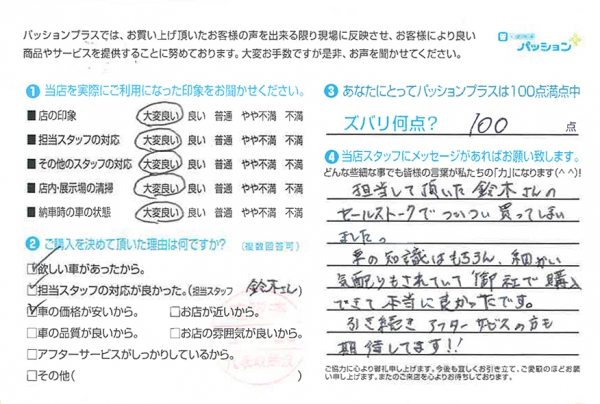 パッションプラスでは、お買い上げ頂いたお客様の声を出来る限り現場に反映させ、お客様により良い
商品やサービスを提供することに努めております。大変お手数ですが是非、お声を聞かせてください。
パッション+
❶ 当店を実際にご利用になった印象をお聞かせください。
■ 店の印象 大変良い 良い 普通 やや不満 不満
■ 担当スタッフの対応 大変良い 良い 普通 やや不満 不満
■ その他のスタッフの対応 大変良い 良い 普通 やや不満 不満
■ 店内・展示場の清掃 大変良い 良い 普通 やや不満 不満
■ 納車時の車の状態 大変良い 良い 普通 やや不満 不満
❷ ご購入を決めて頂いた理由は何ですか? (複数回答可)
☑欲しい車があったから。
☑担当スタッフの対応が良かった。(担当スタッフ 鈴木さん)
☑車の価格が安いから。 □お店が近いから。
□車の品質が良いから。 □お店の雰囲気が良いから。
□アフターサービスがしっかりしているから。
□その他( )
❸ あなたにとってパッションプラスは100点満点中
ズバリ何点? 100 点
❹ 当店スタッフにメッセージがあればお願い致します。
どんな些細な事でも皆様の言葉が私たちの「力」になります(^^)!
担当して頂いた鈴木さんの
セールストークでついつい買ってしまい
ました。
車の知識はもちろん、細かい
気配りもされていて御社で購入
できて本当に良かったです。
引き続きアフターサービスの方も
期待してます!!
ご協力に心より御礼申し上げます。今後も宜しくお引き立て、ご愛顧のほどお願
い申し上げます。またのご来店を心よりお待ちしております。